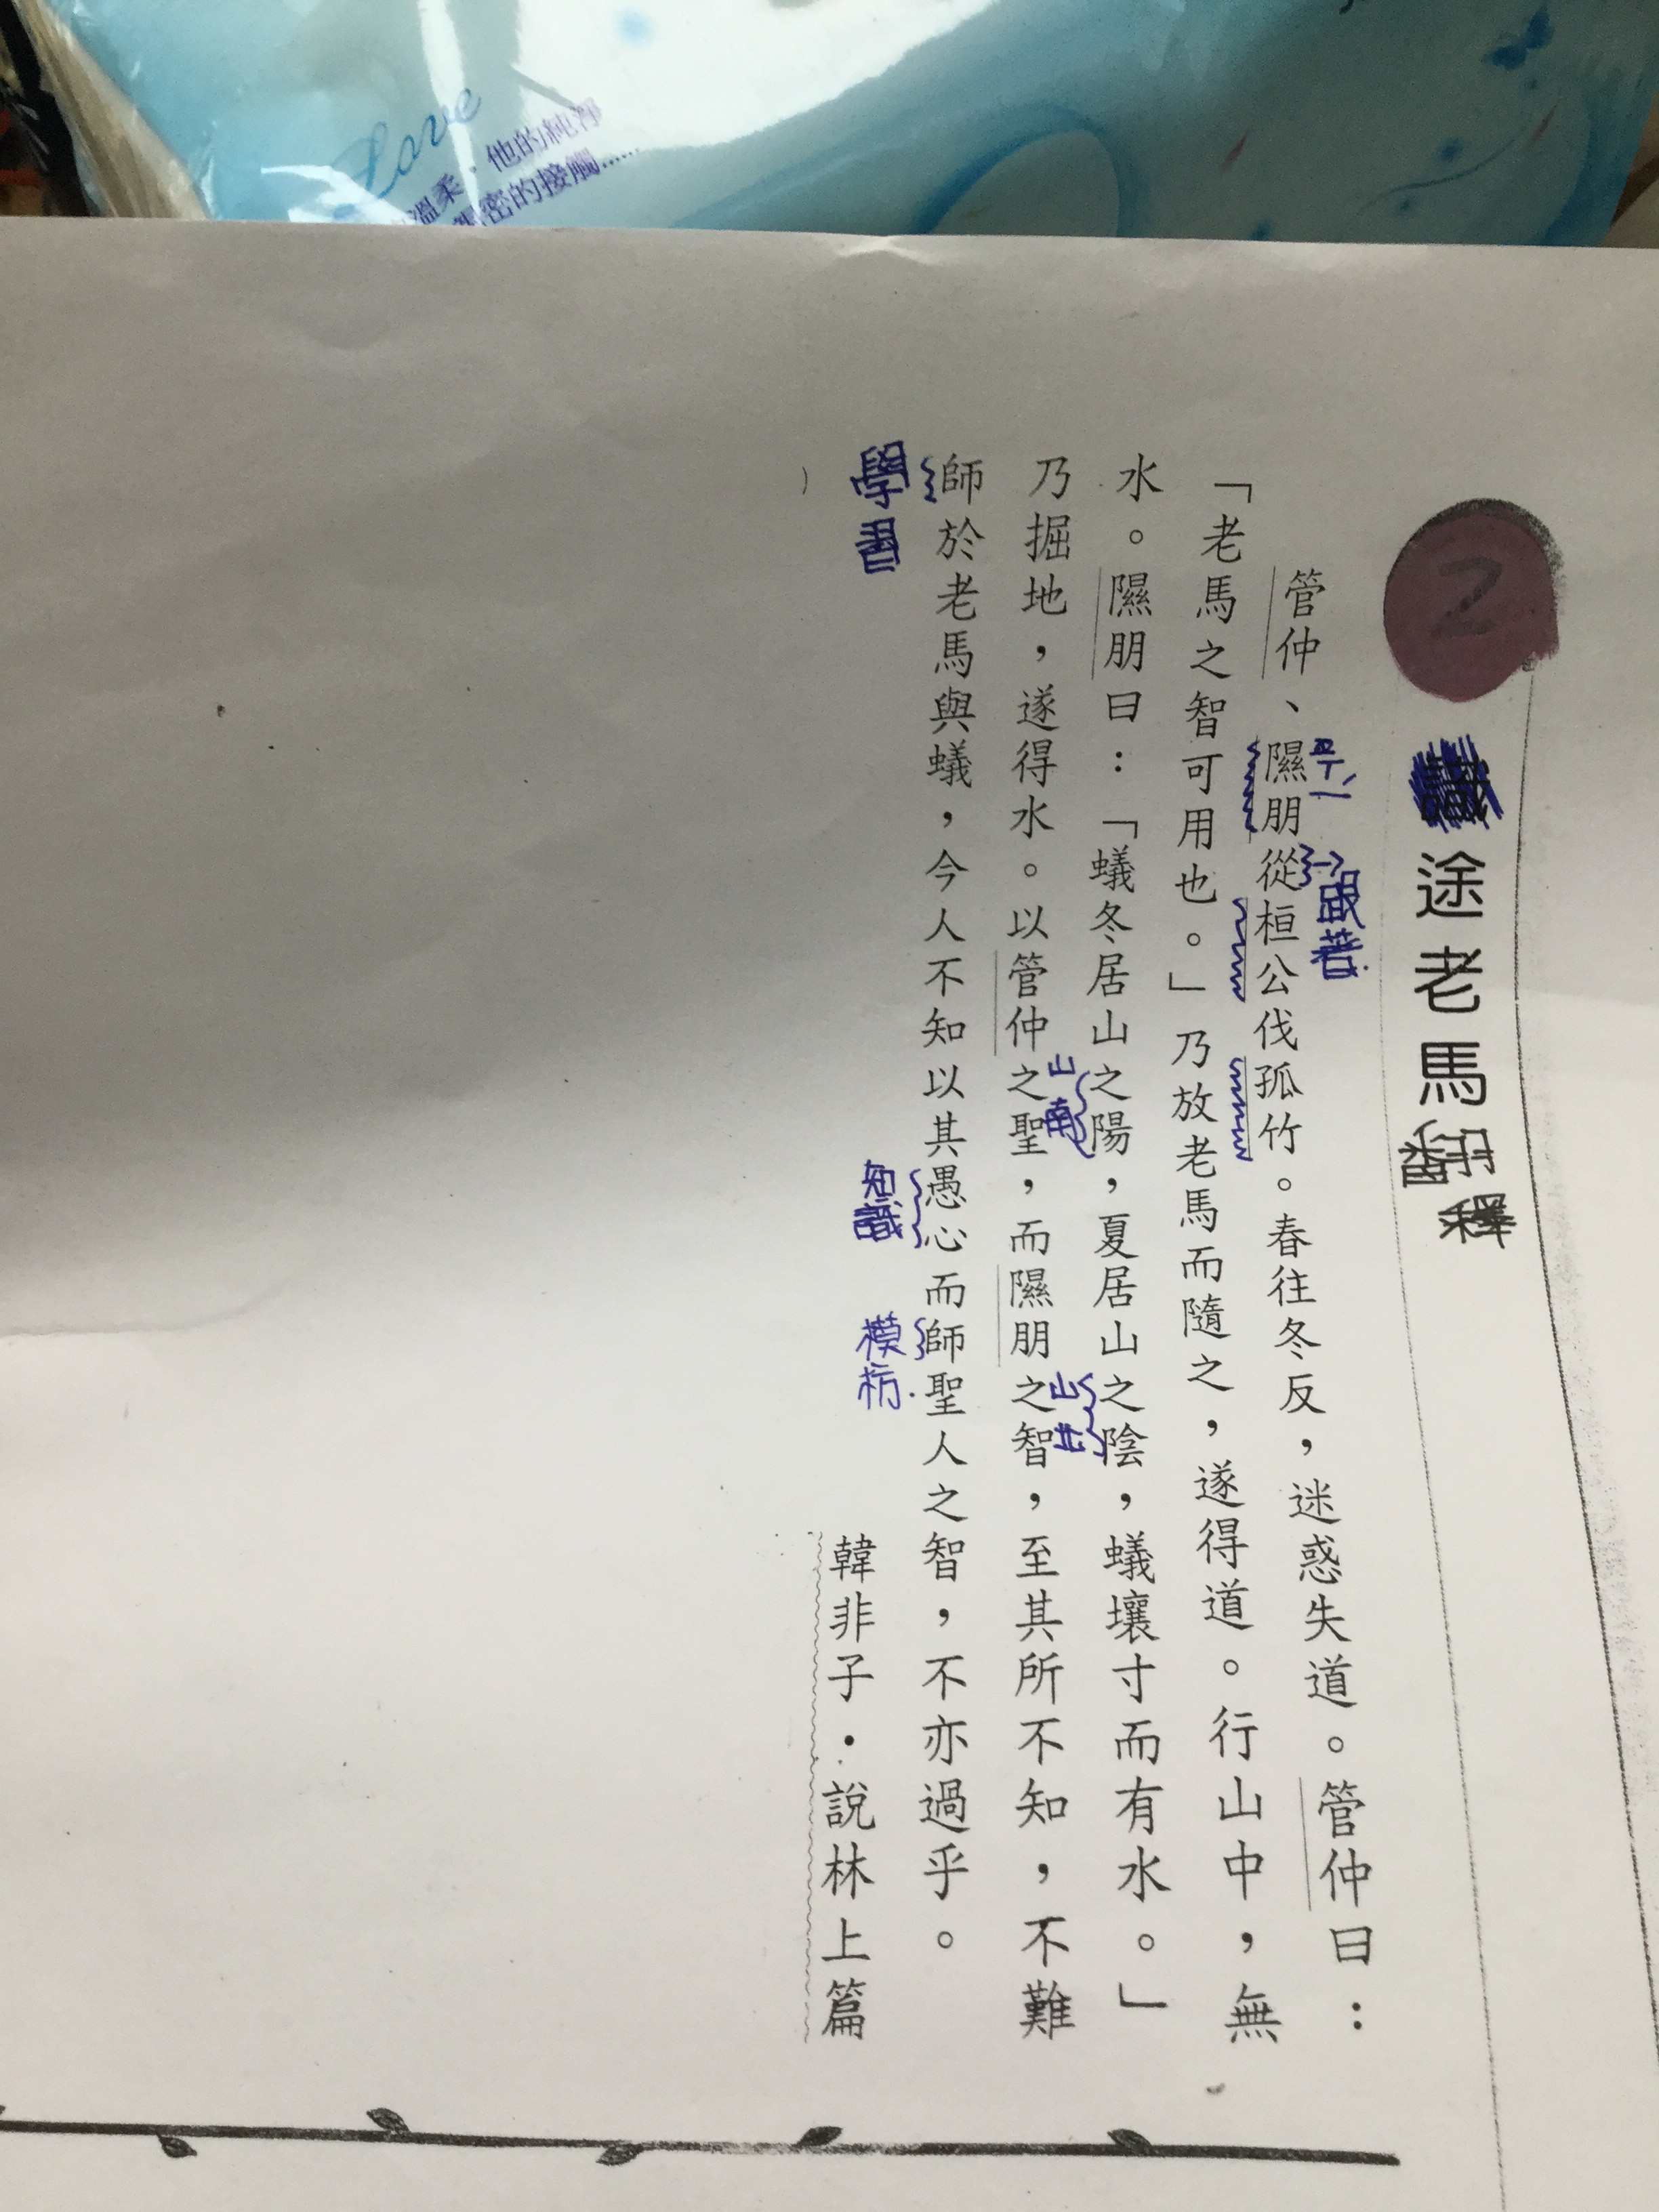 Love
溫柔，他的純淨
密的接觸……
2
途老馬翻釋
管仲、隰朋從桓公伐孤竹。春往冬反，迷惑失道。管仲曰：
跟著
「老馬之智可用也。」乃放老馬而隨之，遂得道。行山中，無
水。隰朋曰：「蟻冬居山之陽，夏居山之陰，蟻壤寸而有水。」
山南
山北
乃掘地，遂得水。以管仲之聖，而隰朋之智，至其所不知，不難
師於老馬與蟻，今人不知以其愚心而師聖人之智，不亦過乎。
學習
知識
模枋.
韓非子．說林上篇